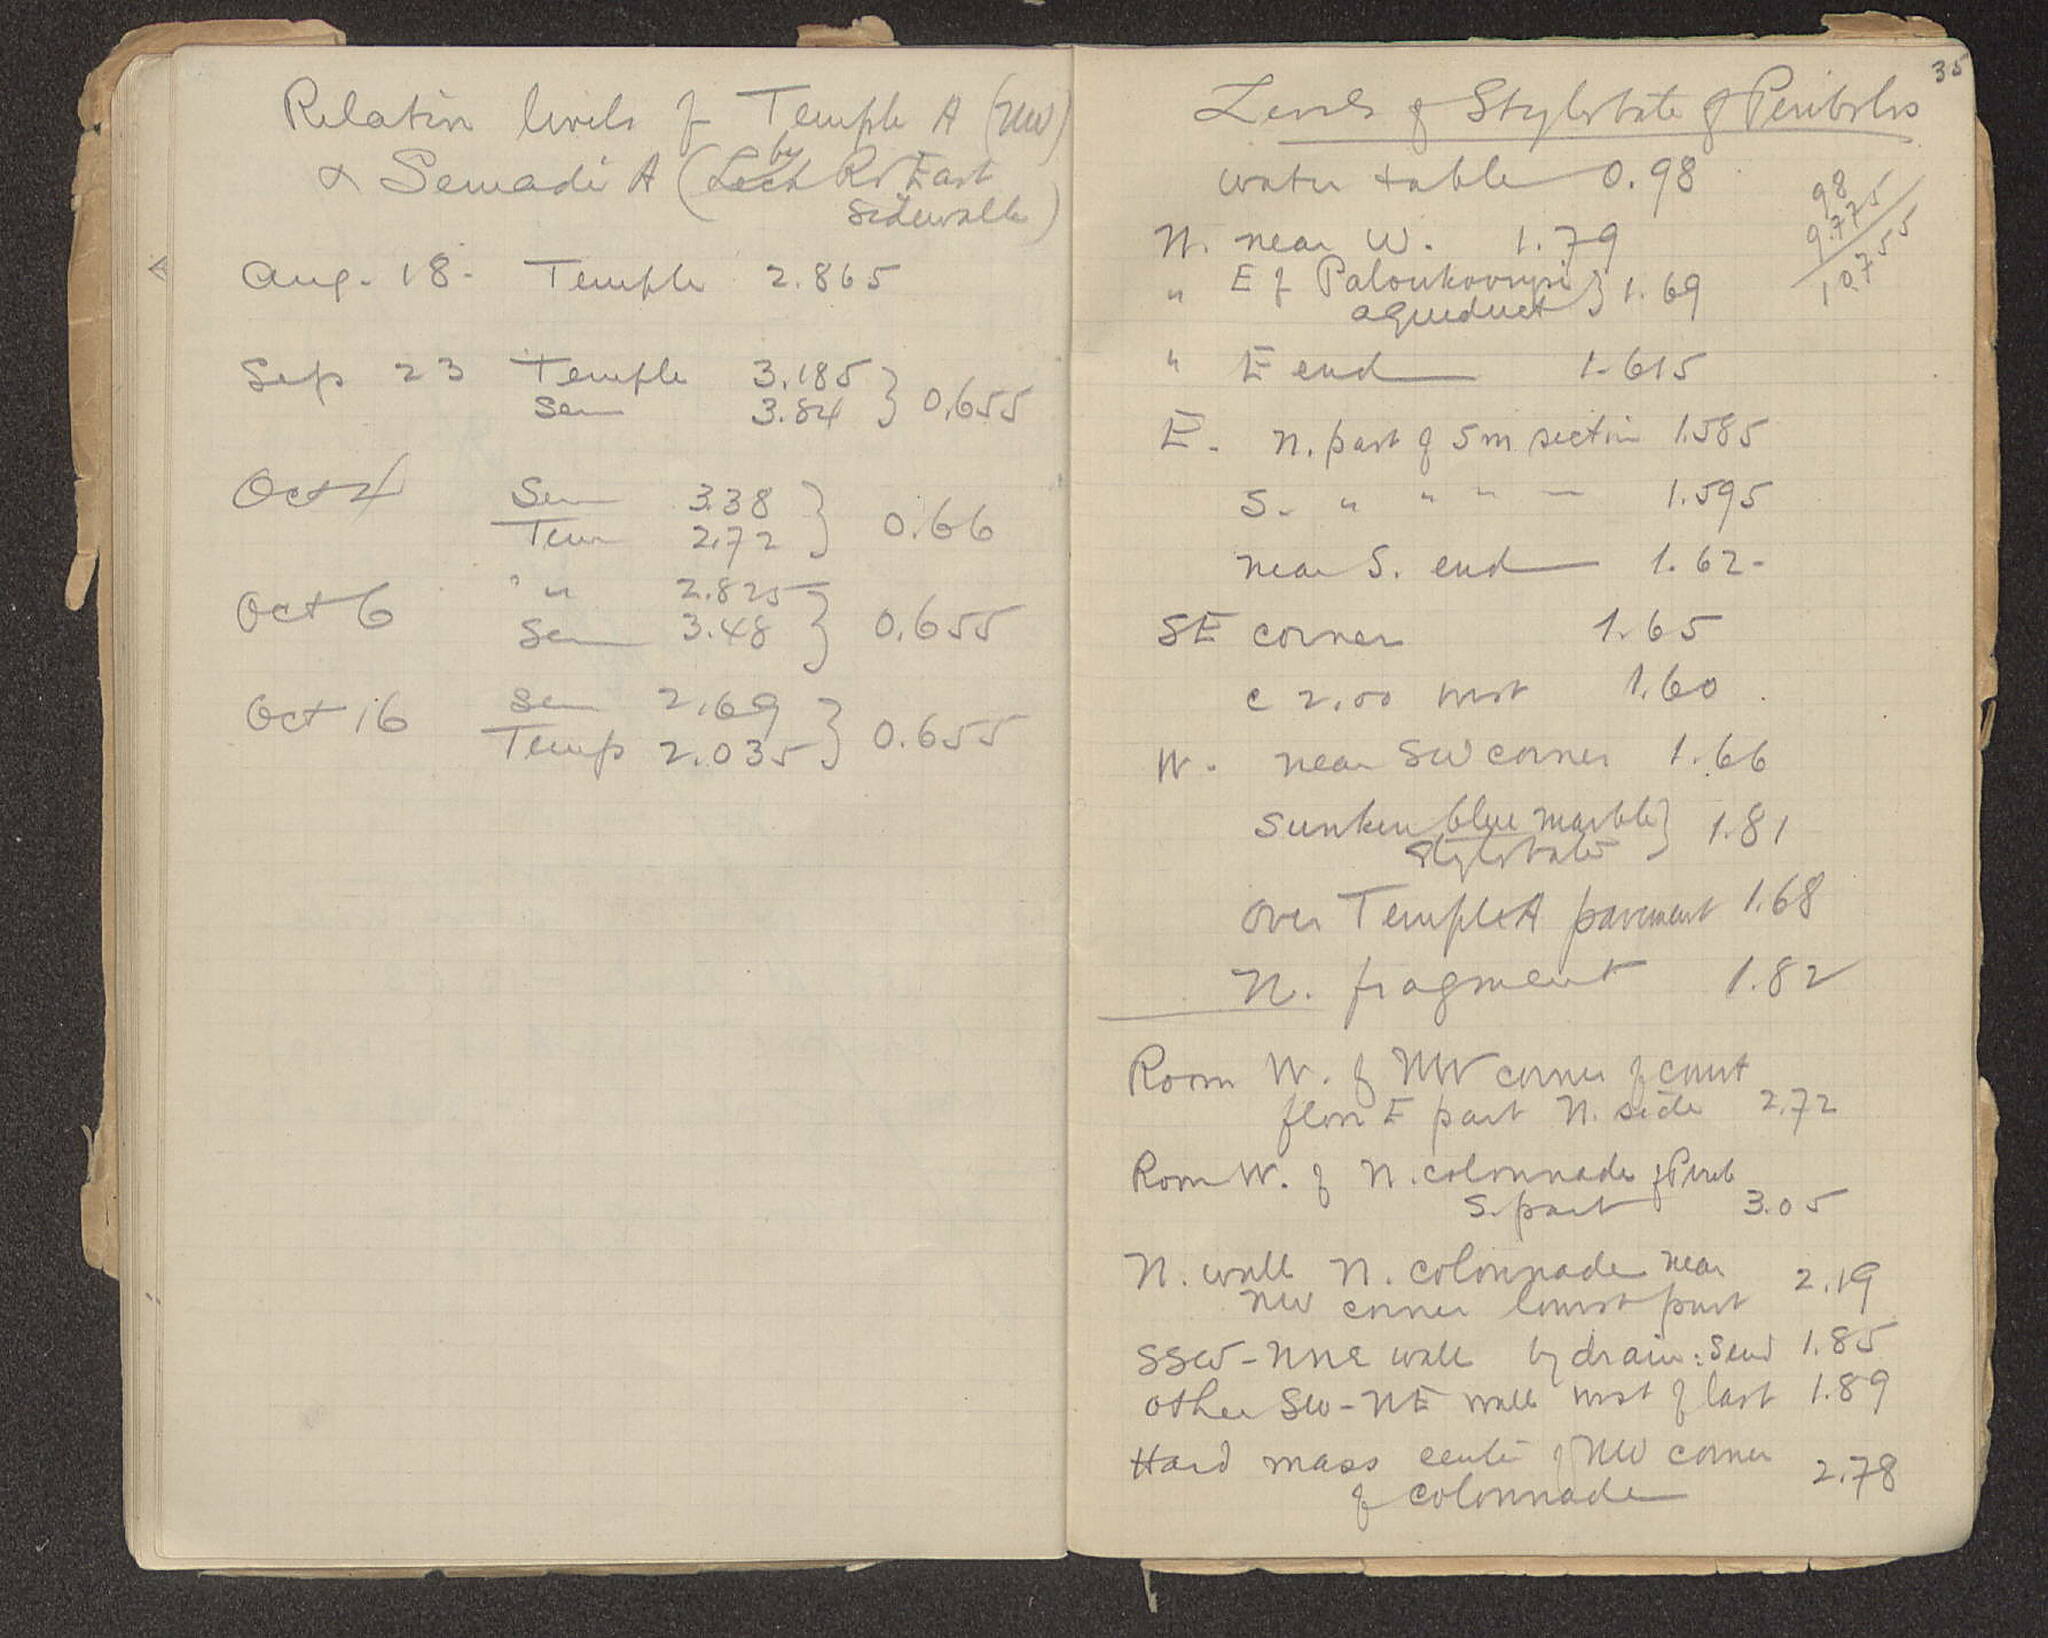 Relative levels of Temple A (NW)
& Semadi A (by Lech Rd East
sidewalk)
Aug. 18. Temple 2.865
Sep 23 Temple 3.185
Sem 3.84 } 0.655
Oct 4 Sem 3.38
Tem 2.72 } 0.66
Oct 6 " " 2.825
Sem 3.48 } 0.655
Oct 16 Sem 2.69
Temp 2.035 } 0.655
35
Levels of Stylobate of Peribolos
water table 0.98
98
9.775
10.755
N. near W. 1.79
" E of Paloukovrysi
aqueduct } 1.69
" E end 1.615
E. N. part of 5m section 1.585
S. " " " — 1.595
near S. end 1.62
SE corner 1.65
c 2.00 west 1.60
W. near SW corner 1.66
Sunken blue marble
stylobate } 1.81
over Temple A pavement 1.68
N. fragment 1.82
Room W. of NW corner of court
floor E part N. side 2.72
Room W. of N. colonnade of Perib
S. part 3.05
N. wall N. colonnade near
NW corner lowest part 2.19
SSW-NNE wall by drain: S end 1.85
other SW-NE wall west of last 1.89
Hard mass center of NW corner
of colonnade 2.78